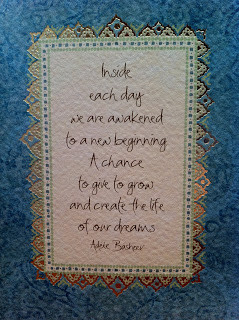 Inside
each day
we are awakened
to a new beginning
A chance
to give to grow
and create the life
of our dreams
Adele Basheer